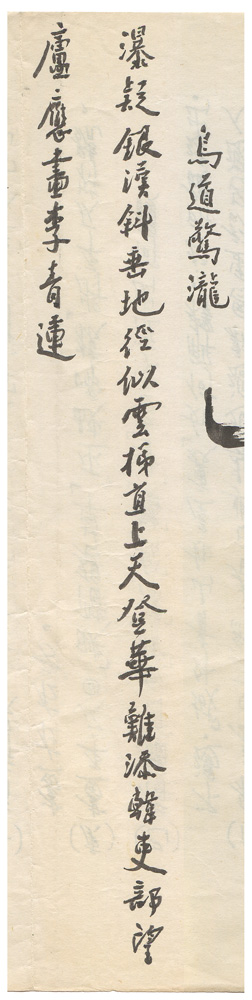 鳥道驚瀧
瀑疑銀漢斜垂地徑似雲梯直上天登華難添韓吏部望
廬應畫李青蓮